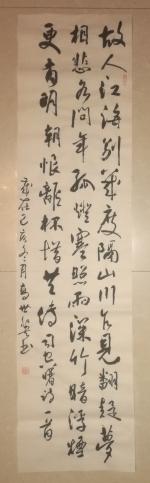 故人江海別幾度隔山川乍見翻疑夢
相悲各問年孤燈寒照雨深竹暗浮煙
更有明朝恨離杯惜共傳司空曙詩一首
歲在己亥冬月 世 書